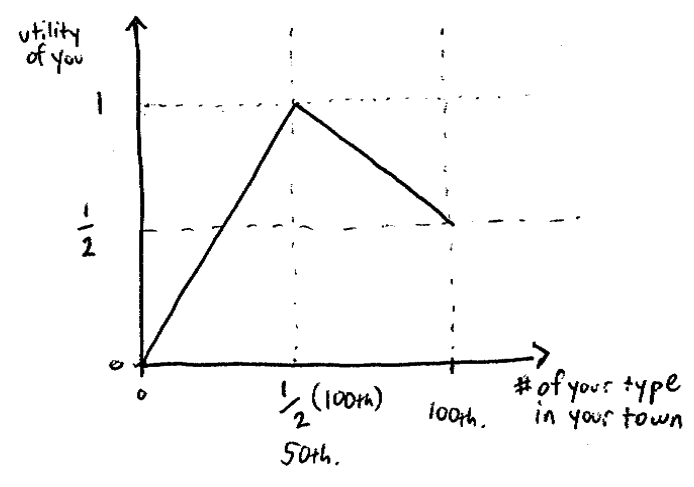 utility
of you
1
1/2
0
0
1/2 (100th)
50th.
100th.
# of your type
in your town